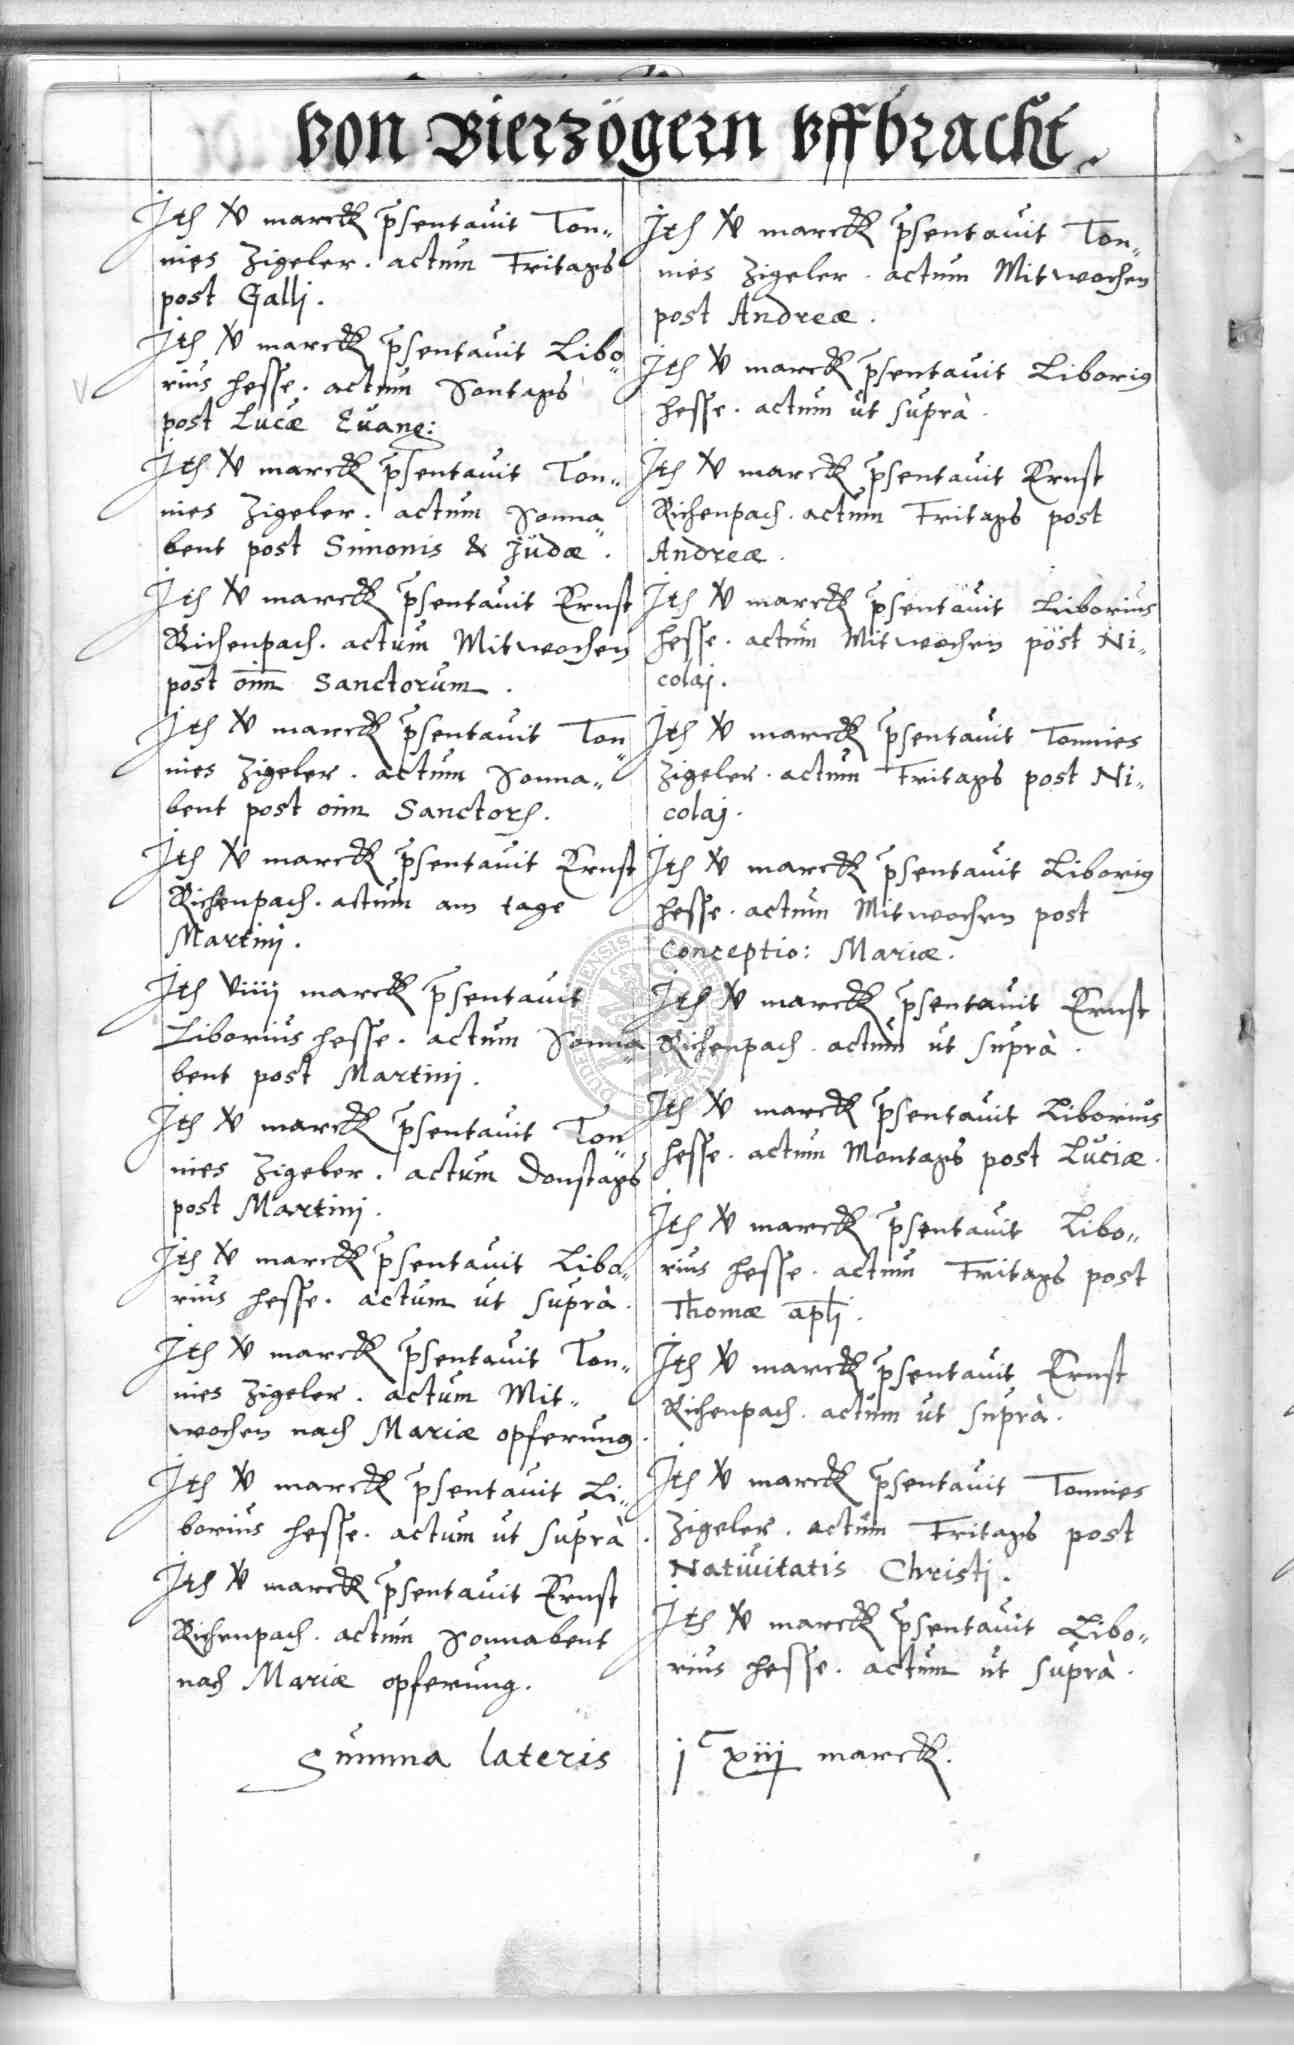 Von Bierzögern Vffbracht.
Ité v̸ marckꝭ p̃sentauit Ton„
nies Zigeler. actum Fritags
post Gallj.
Ité v̸ marckꝭ p̃sentauit Libo„
rius Hesse. actum Sontags
post Lucæ Euang:
Ité v̸ marckꝭ p̃sentauit Ton„
nies Zigeler. actum Sonna„
bent post Simonis & Judæ.
Ité v̸ marckꝭ p̃sentauit Ernst
Richenpach. actum Mitwochen
post oīm Sanctorum.
Ité v̸ marckꝭ p̃sentauit Ton„
nies Zigeler. actum Sonna„
bent post oīm Sanctoꝝ.
Ité v̸ marckꝭ p̃sentauit Ernst
Richenpach. actum am tage
Martinj.
Ité viiij marckꝭ p̃sentauit
Liborius Hesse. actum Sonna„
bent post Martinj.
Ité v̸ marckꝭ p̃sentauit Ton„
nies Zigeler. actum Donstags
post Martinj.
Ité v̸ marckꝭ p̃sentauit Libo„
rius Hesse. actum ut suprà.
Ité v̸ marckꝭ p̃sentauit Ton„
nies Zigeler. actum Mit„
wochen nach Mariæ opferung.
Ité v̸ marckꝭ p̃sentauit Li„
borius Hesse. actum ut suprà.
Ité v̸ marckꝭ p̃sentauit Ernst
Richenpach. actum Sonnabent
nach Mariæ opferung.
Ité v̸ marckꝭ p̃sentauit Ton„
nies Zigeler. actum Mitwochen
post Andreæ.
Ité v̸ marckꝭ p̃sentauit Liboriꝰ
Hesse. actum ut suprà.
Ité v̸ marckꝭ p̃sentauit Ernst
Richenpach. actum Fritags post
Andreæ.
Ité v̸ marckꝭ p̃sentauit Liborius
Hesse. actum Mitwochen post Ni„
colaj.
Ité v̸ marckꝭ p̃sentauit Tonnies
Zigeler. actum Fritags post Ni„
colaj.
Ité v̸ marckꝭ p̃sentauit Liboriꝰ
Hesse. actum Mitwochen post
Conceptio: Mariæ.
Ité v̸ marckꝭ p̃sentauit Ernst
Richenpach. actum ut suprà.
Ité v̸ marckꝭ p̃sentauit Liborius
Hesse. actum Montags post Luciæ.
Ité v̸ marckꝭ p̃sentauit Libo„
rius Hesse. actum Fritags post
Thomæ apłj.
Ité v̸ marckꝭ p̃sentauit Ernst
Richenpach. actum ut suprà.
Ité v̸ marckꝭ p̃sentauit Tonnies
Zigeler. actum Fritags post
Natiuitatis Christj.
Ité v̸ marckꝭ p̃sentauit Libo„
rius Hesse. actum ut suprà.
Summa lateris jᶜ xiij marckꝭ.